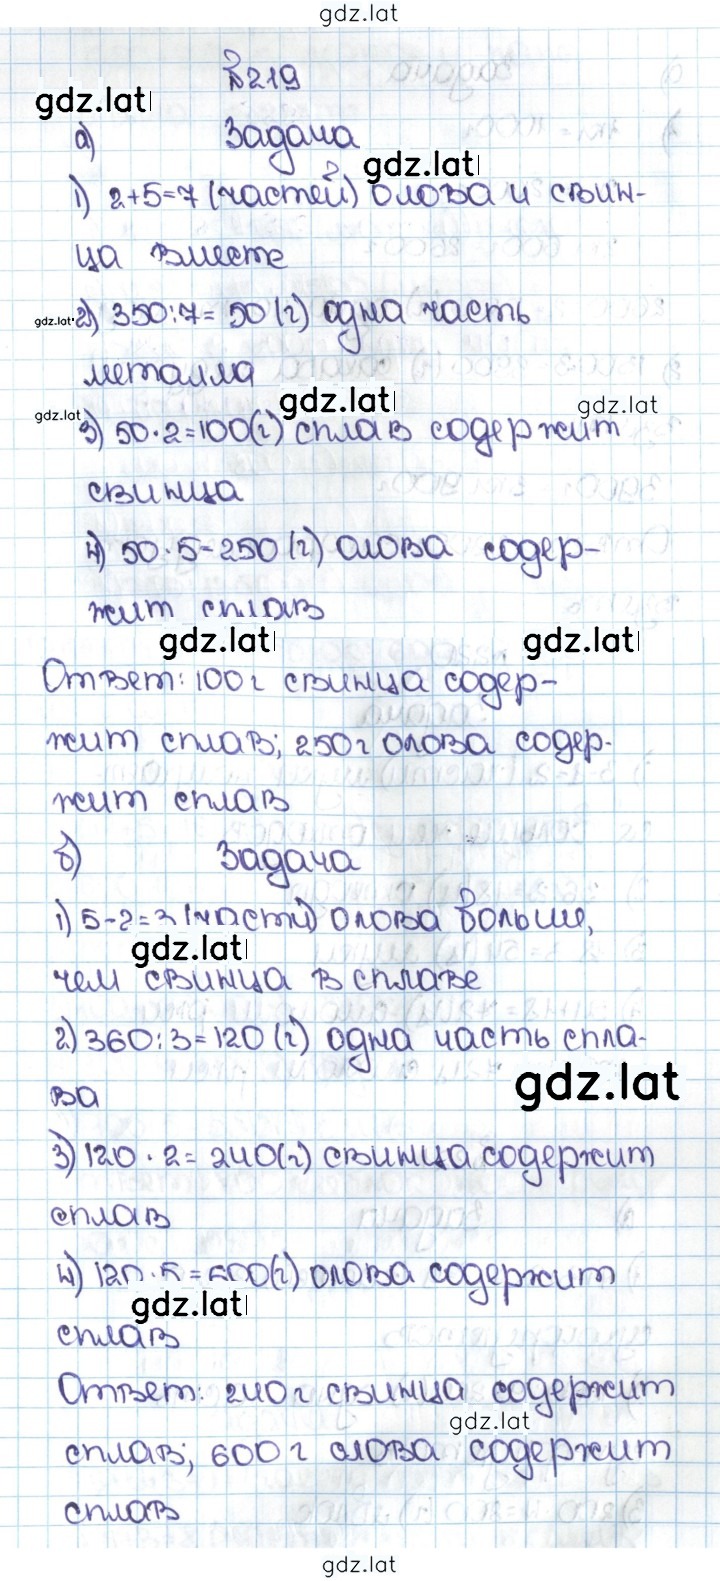 gdz.lat
№219
gdz.lat
а) Задача
gdz.lat
1) 2+5=7 (частей) олова и свин-
ца вместе
gdz.lat 2) 350:7=50(г) одна часть
металла
gdz.lat
gdz.lat
gdz.lat
3) 50·2=100(г) сплав содержит
свинца
4) 50·5=250(г) олова содер-
жит сплав
gdz.lat gdz.lat
Ответ: 100г свинца содер-
жит сплав; 250г олова содер-
жит сплав
б) Задача
1) 5-2=3 (части) олова больше,
gdz.lat
чем свинца в сплаве
2) 360:3=120(г) одна часть спла-
gdz.lat
ва
3) 120·2=240(г) свинца содержит
сплав
4) 120·5=600(г) олова содержит
gdz.lat
сплав
Ответ: 240г свинца содержит
gdz.lat
сплав; 600г олова содержит
сплав
gdz.lat